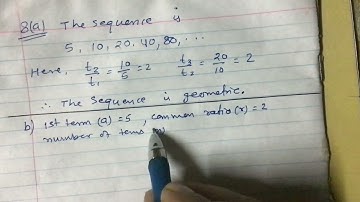 8(a) The sequence is
5, 10, 20, 40, 80, ...
Here, t₂/t₁ = 10/5 = 2   t₃/t₂ = 20/10 = 2
∴ The sequence is geometric.
b) 1st term (a) = 5 , common ratio (r) = 2
number of terms